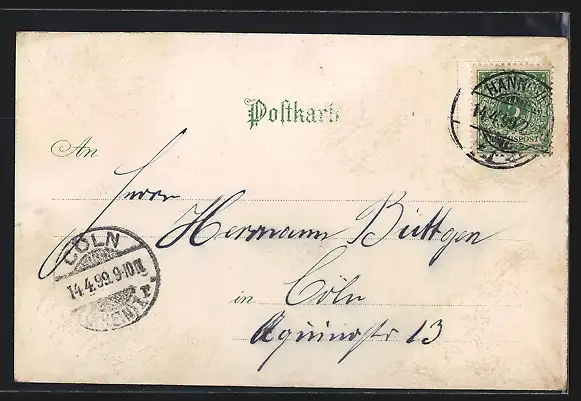 Postkarte
An
Herrn
Hermann Büttgen
in Cöln
Aquinostr 13
HANNOVER
14.4.99
REICHSPOST
CÖLN
14.4.99.9-10N